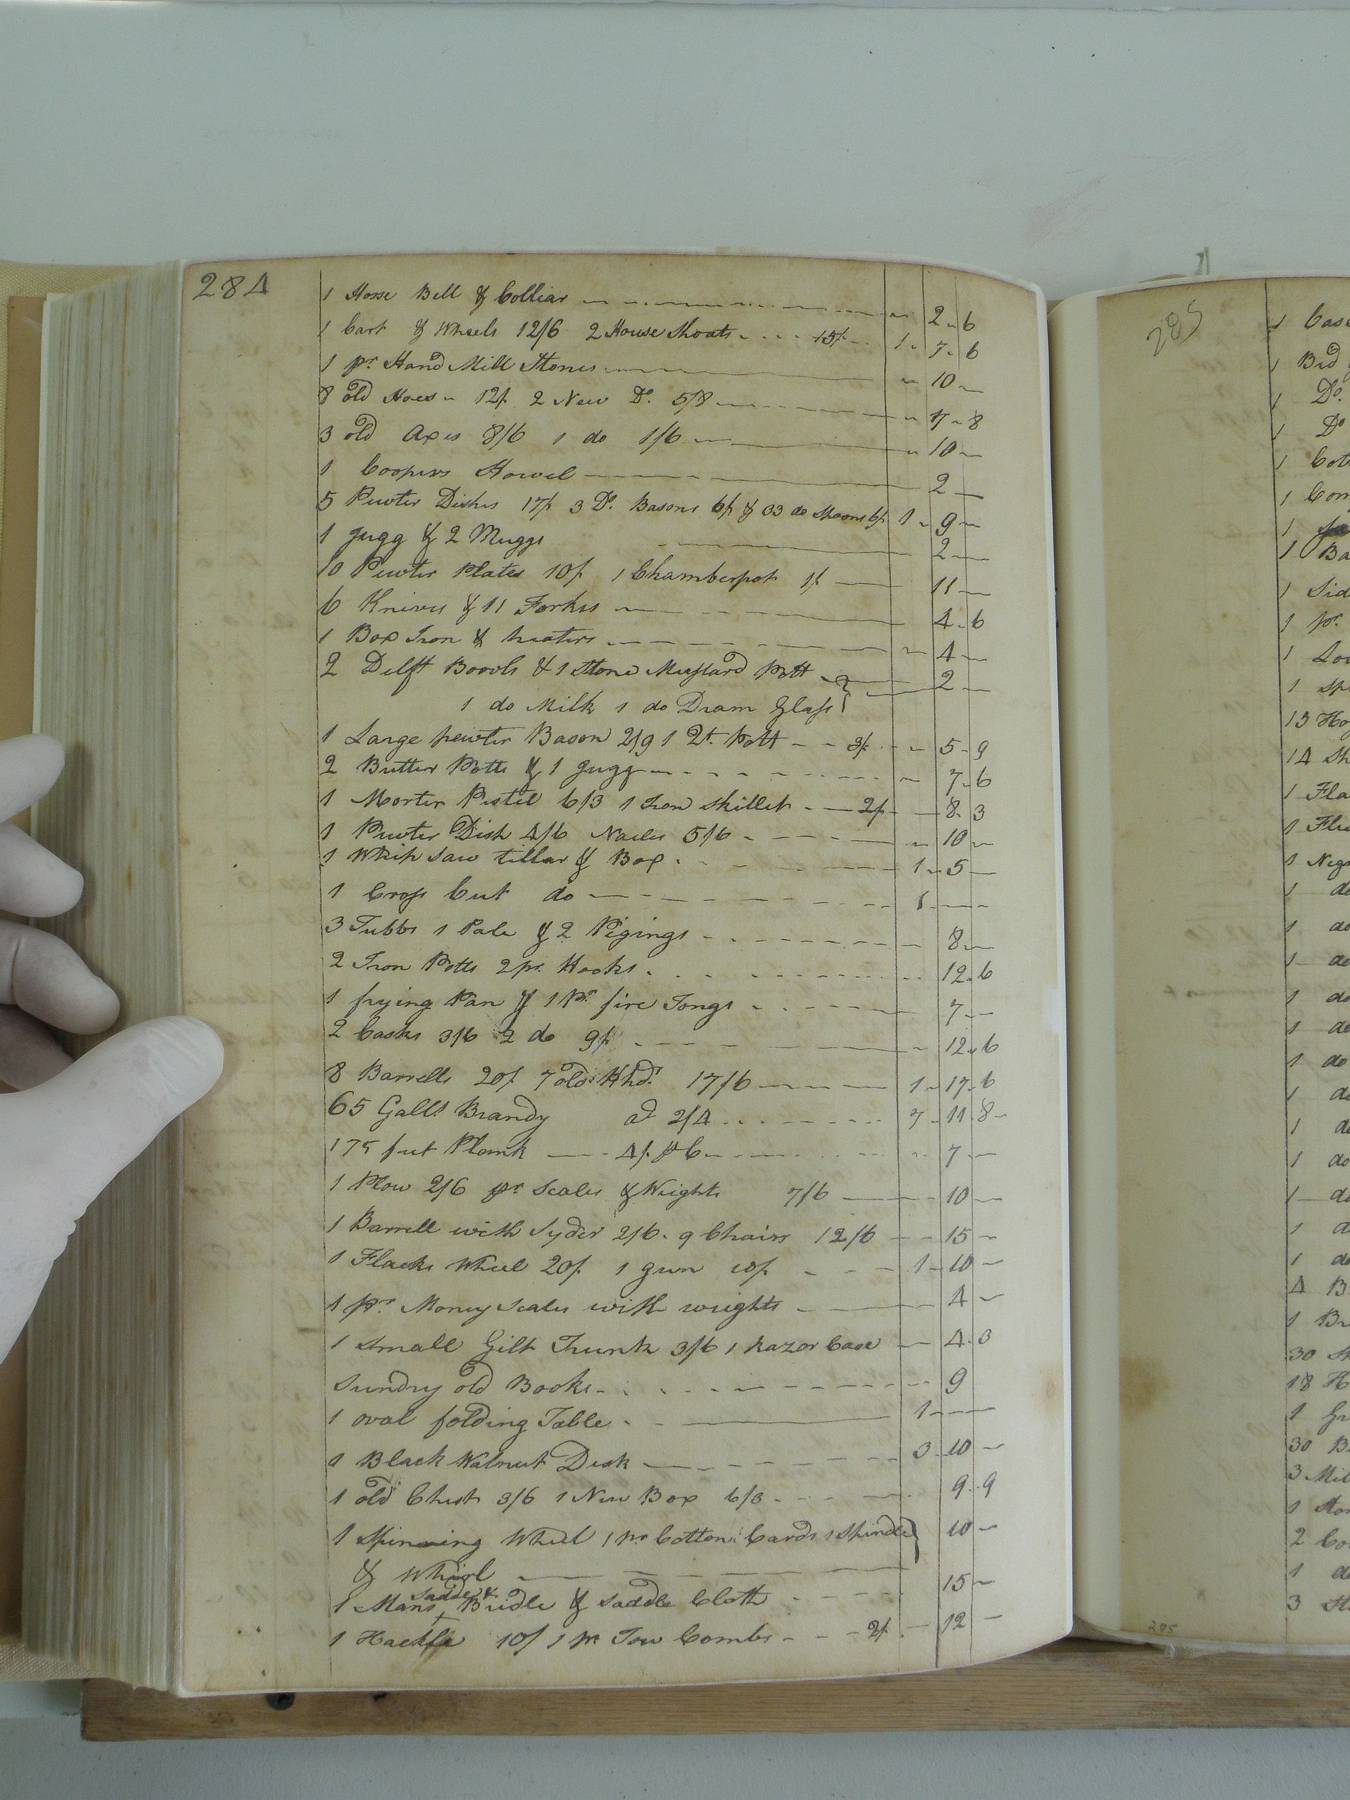 284
1 Horse Bell & Colliar 2 - 6
1 Cart & Wheels 12/6 2 House Shoats 15/ 1 - 7 - 6
1 pr Hand Mill Stones 10
8 old Hoes 12/ 2 New Do. 5/8 17 - 8
3 old Axes 8/6 1 do 1/6 10
1 Coopers Howel 2
5 Pewter Dishes 17/ 3 Do. Basons 6/ & 33 do Spoons 6/ 1 - 9
1 Jugg & 2 Muggs 2
10 Pewter Plates 10/ 1 Chamberpot 1/ 11
6 Knives & 11 Forkes 4 - 6
1 Box Iron & heaters 4
2 Delft Bowls & 1 Stone Mustard Pott 2
1 do Milk 1 do Dram Glass
1 Large pewter Bason 2/9 1 Qt. Pott 3/ 5 - 9
2 Butter Potts & 1 Jugg 7 - 6
1 Morter Pestel 6/3 1 Iron Skillet 2/ 8 - 3
1 Pewter Dish 4/6 Nailes 5/6 10
1 Whip saw tillar & Box 1 - 5
1 Cross Cut do 1
3 Tubbs 1 Pale & 2 Pigings 8
2 Iron Potts 2 pr. Hooks 12 - 6
1 frying Pan & 1 Pr fire Tongs 7
2 Casks 3/6 2 do 9/ 12 - 6
8 Barrells 20/ 7 old Hhds 17/6 1 - 17 - 6
65 Galls Brandy a 2/4 7 - 11 - 8
175 feet Plank 4/ p C 7
1 Plow 2/6 pr Scales & Weights 7/6 10
1 Barrell with Syder 2/6 9 Chairs 12/6 15
1 Flacks Wheel 20/ 1 gun 10/ 1 - 10
1 pr Money Scales with weights 4
1 Small Gilt Trunk 3/6 1 Razor Case 4 - 3
Sundry old Books 9
1 oval folding Table 1
1 Black Walnut Desk 3 - 10
1 old Chest 3/6 1 New Box 6/3 9 - 9
1 Spinning Wheel 1 pr Cotton Cards 1 Spindle 10
& Whirl
1 Mans Saddle & Bridle & saddle Cloth 15
1 Hackle 10/ 1 pr Tow Combs 2/ 12
285
1 Case
1 Bed
1 Do.
1 Do
1
1
1
1
1
1 pr.
1
1
13
14
1
1
1
1 do
1
1
1
1
1 do
1
1
1
1
1
1
4
1
30
18
1
30
3
1
2
1
3
285